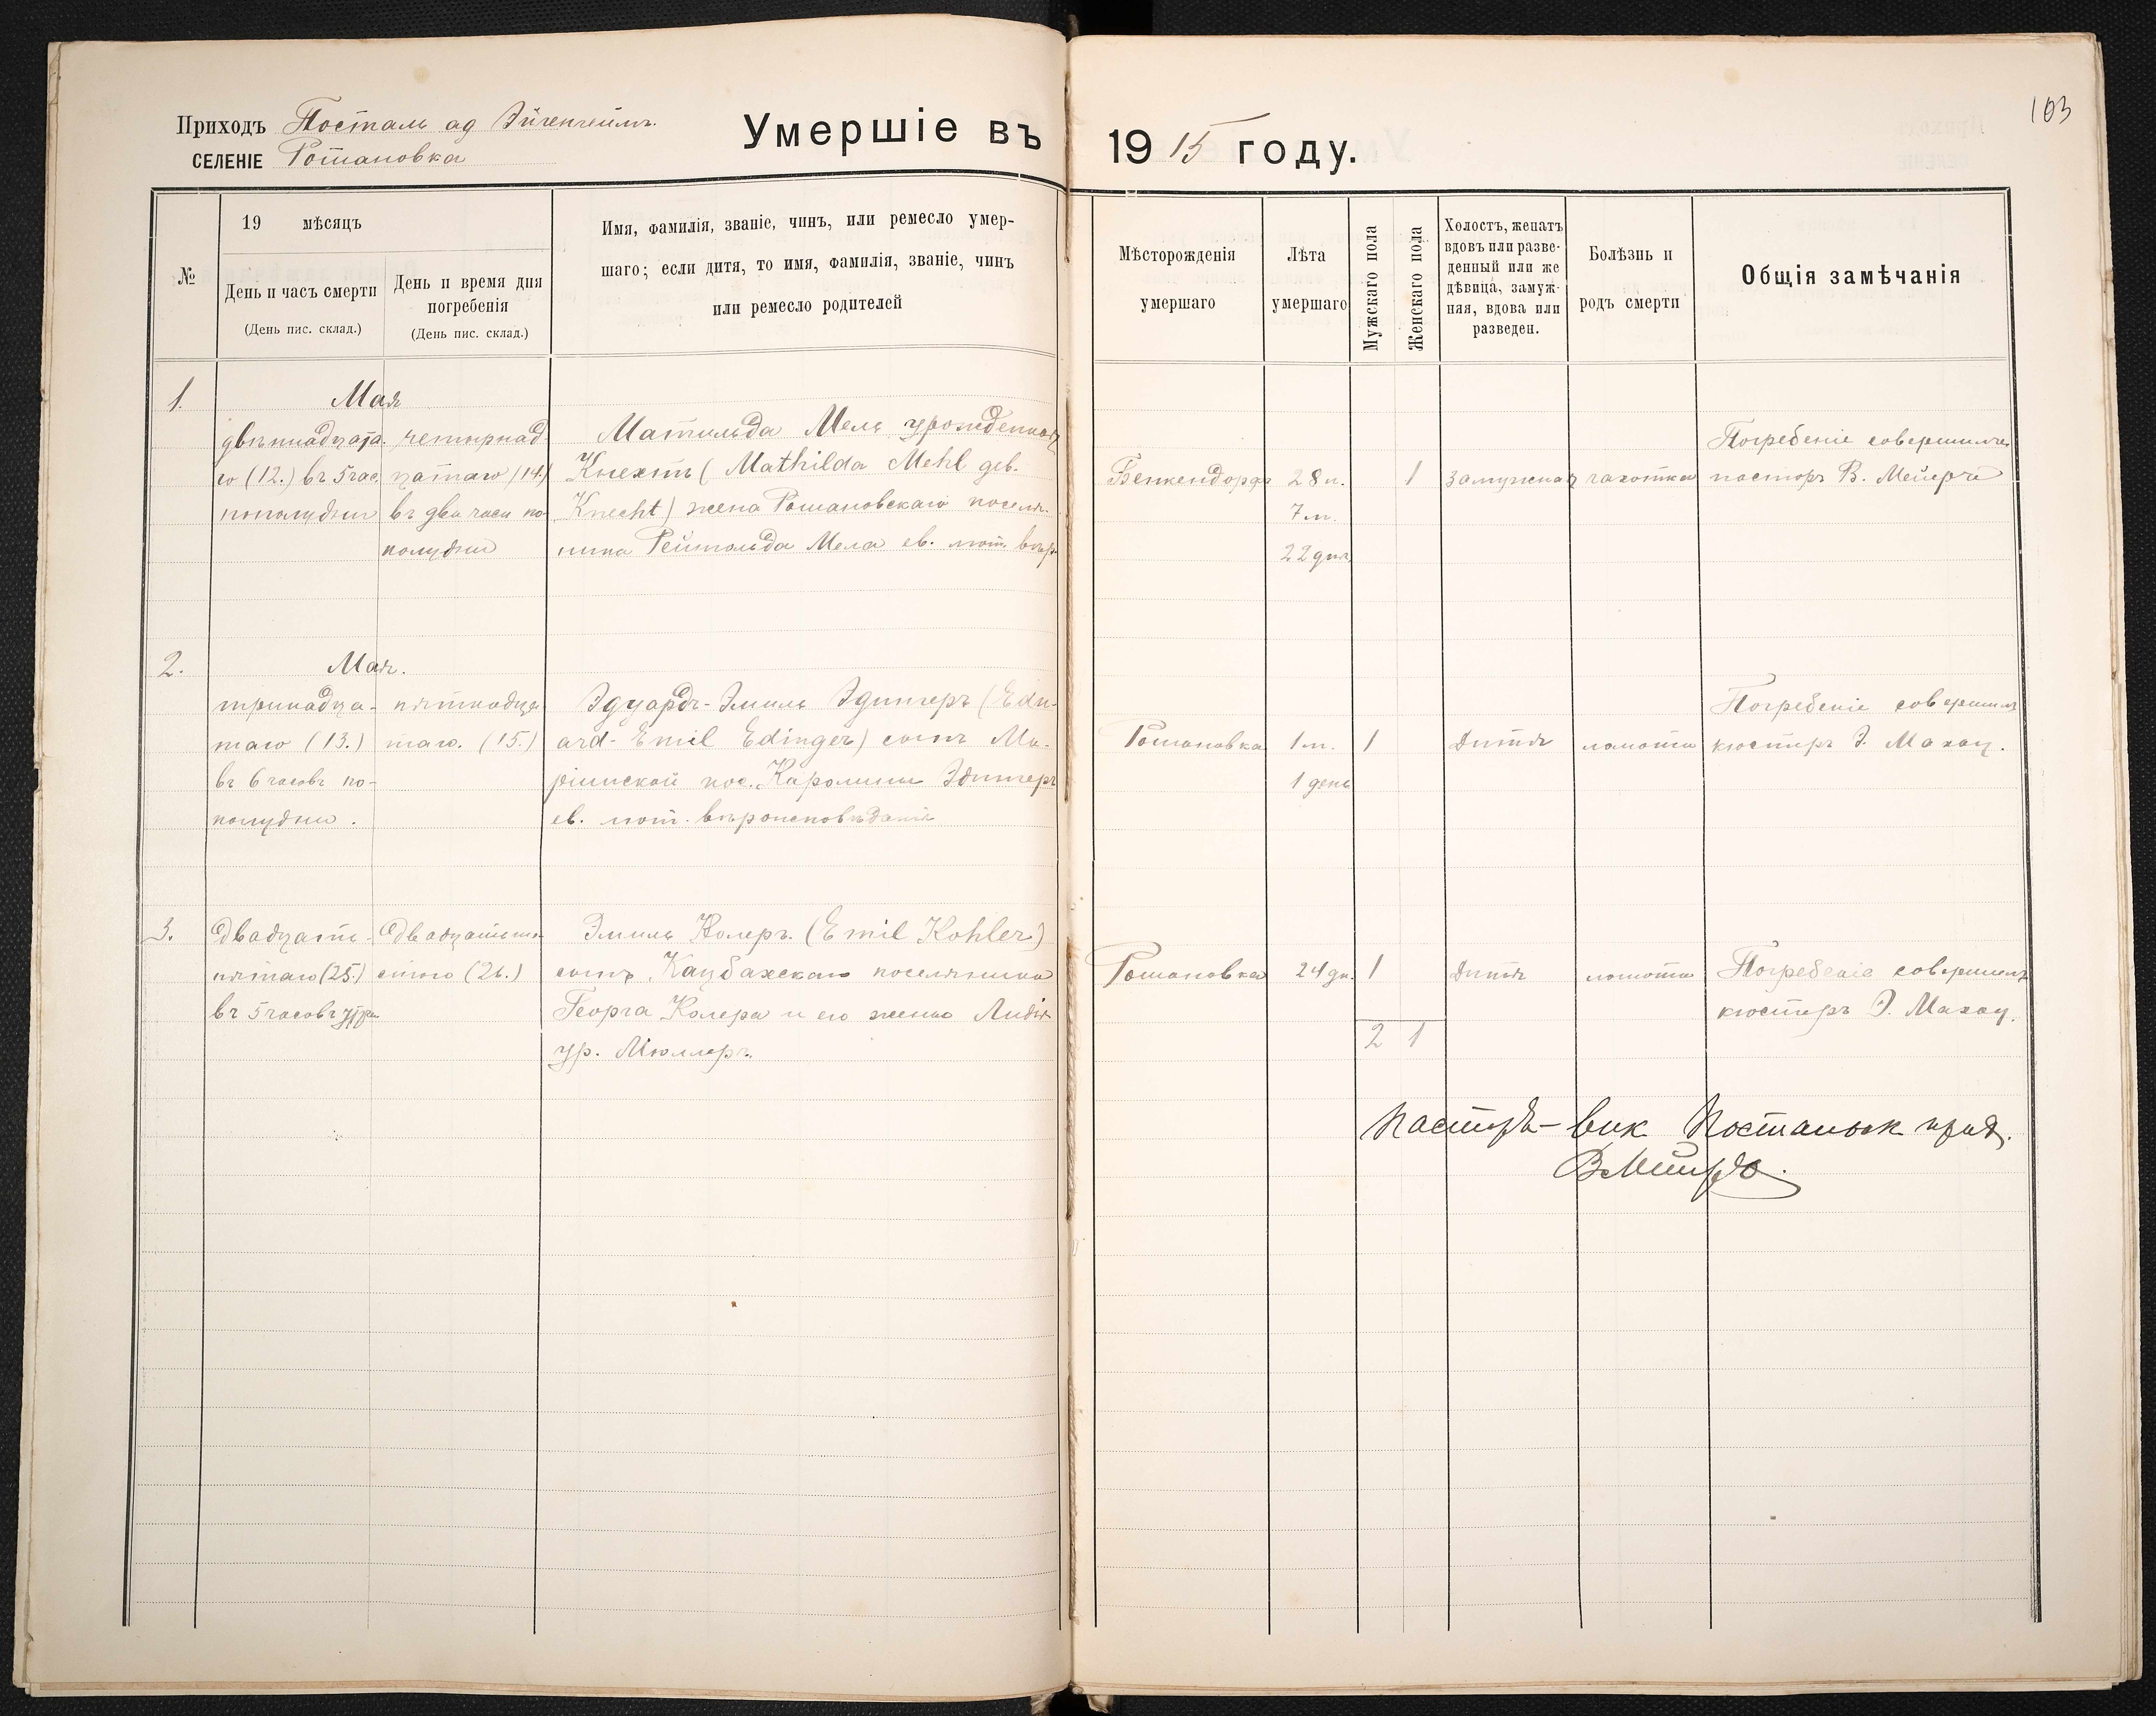 103
Приходъ Посталь ад Эйгенгеймъ.
СЕЛЕНІЕ Романовка
Умершіе въ 1915 году.
№
19 мѣсяцъ
День и часъ смерти
(День пис. склад.)
День и время дня
погребенія
(День пис. склад.)
Имя, фамилія, званіе, чинъ, или ремесло умер-
шаго; если дитя, то имя, фамилія, званіе, чинъ
или ремесло родителей
Мѣсторожденія
умершаго
Лѣта
умершаго
Мужскаго пола
Женскаго пола
Холостъ, женатъ
вдовъ или разве-
денный или же
дѣвица, замуж-
няя, вдова или
разведен.
Болѣзнь и
родъ смерти
Общія замѣчанія
1.
Мая
двѣннадцата
го (12.) въ 5 час.
пополудни
четырнад
цатаго (14.)
въ два часа по
полудни
Матильда Мель урожденная
Кнехтъ (Mathilda Mehl geb.
Knecht) жена Романовскаго поселя-
нина Рейнольда Меля ев. лют. вѣр.
Бенкендорфъ
28 л.
7 м.
22 дня
1
замужная
чахотка
Погребеніе совершилъ
пасторъ В. Мейеръ
2.
Мая.
тринадца-
таго (13.)
въ 6 часовъ по-
полудни.
пятнадца
таго. (15.)
Эдуардъ-Эмиль Эдингеръ (Edu-
ard-Emil Edinger) сынъ Ма-
ріинской пос. Каролины Эдингеръ
ев. лют. вѣроисповѣданія
Романовка
1 м.
1 день
1
Дитя
ломота
Погребеніе совершилъ
кюстеръ Э. Махау.
3.
двадцать-
пятаго (25.)
въ 5 часовъ утра
двадцатьше-
стого (26.)
Эмиль Колеръ. (Emil Kohler)
сынъ Кацбахскаго поселянина
Георга Колера и его жены Лидія
ур. Мюллеръ.
Романовка
24 дн.
1
Дитя
ломота
Погребеніе совершилъ
кюстеръ Э. Махау.
2 1
Пасторъ-вик Постальск прих.
В Мейеръ.